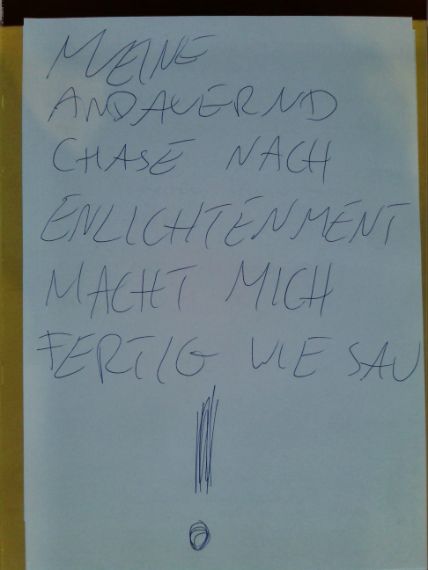 MEINE
ANDAUERND
CHASE NACH
ENLICHTENMENT
MACHT MICH
FERTIG WIE SAU
!